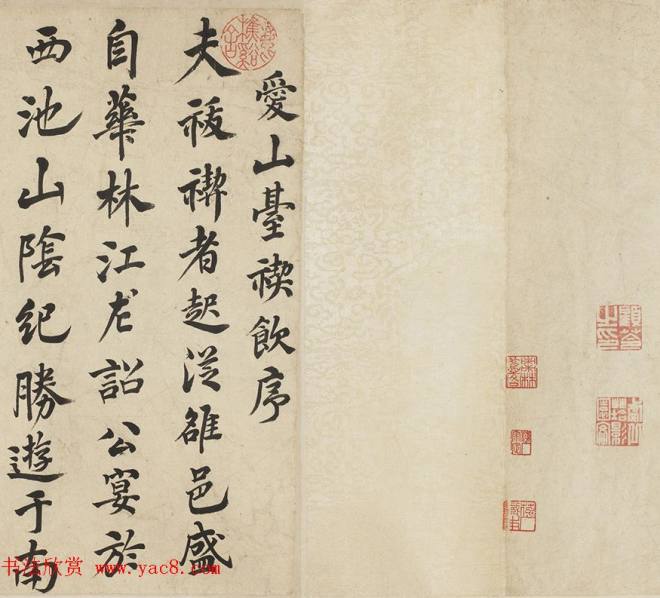 愛山臺禊飲序
夫祓禊者起從雒邑盛
自華林江左詔公宴於
西池山陰紀勝遊于南
书法欣赏 www.yac8.com